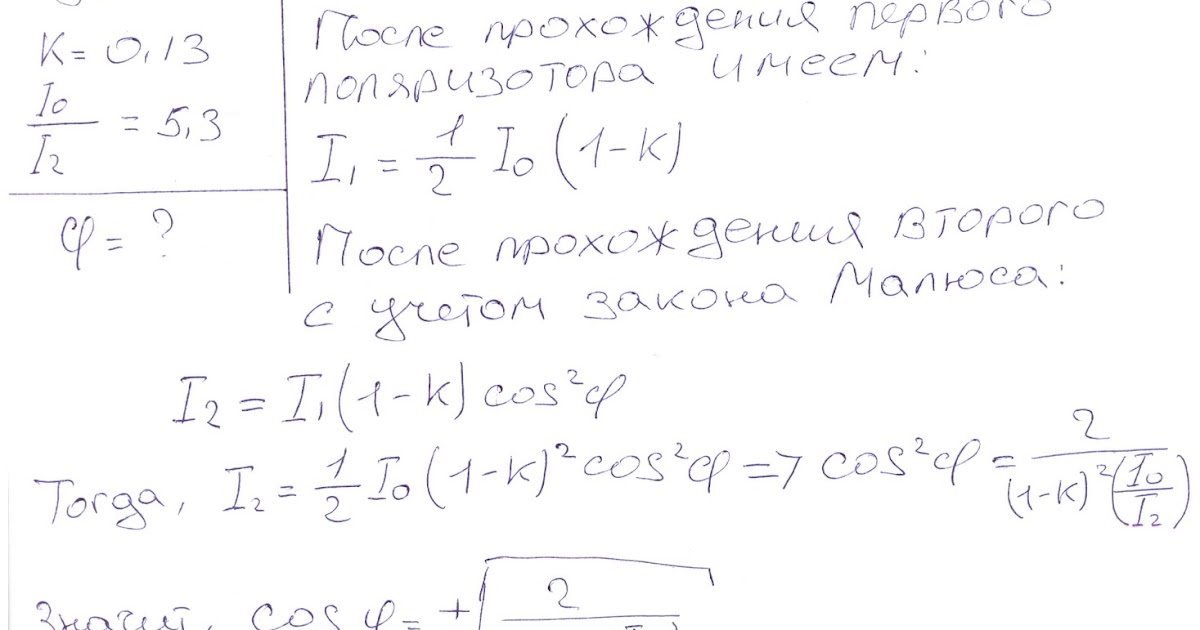 K = 0,13
I₀/I₂ = 5,3
φ = ?
После прохождения первого
поляризотора имеем:
I₁ = 1/2 I₀ (1-K)
После прохождения второго
с учетом закона Малюса:
I₂ = I₁(1-K) cos²φ
Тогда, I₂ = 1/2 I₀ (1-K)² cos²φ => cos²φ = 2/((1-K)²(I₀/I₂))
Значит, cos φ = +√2